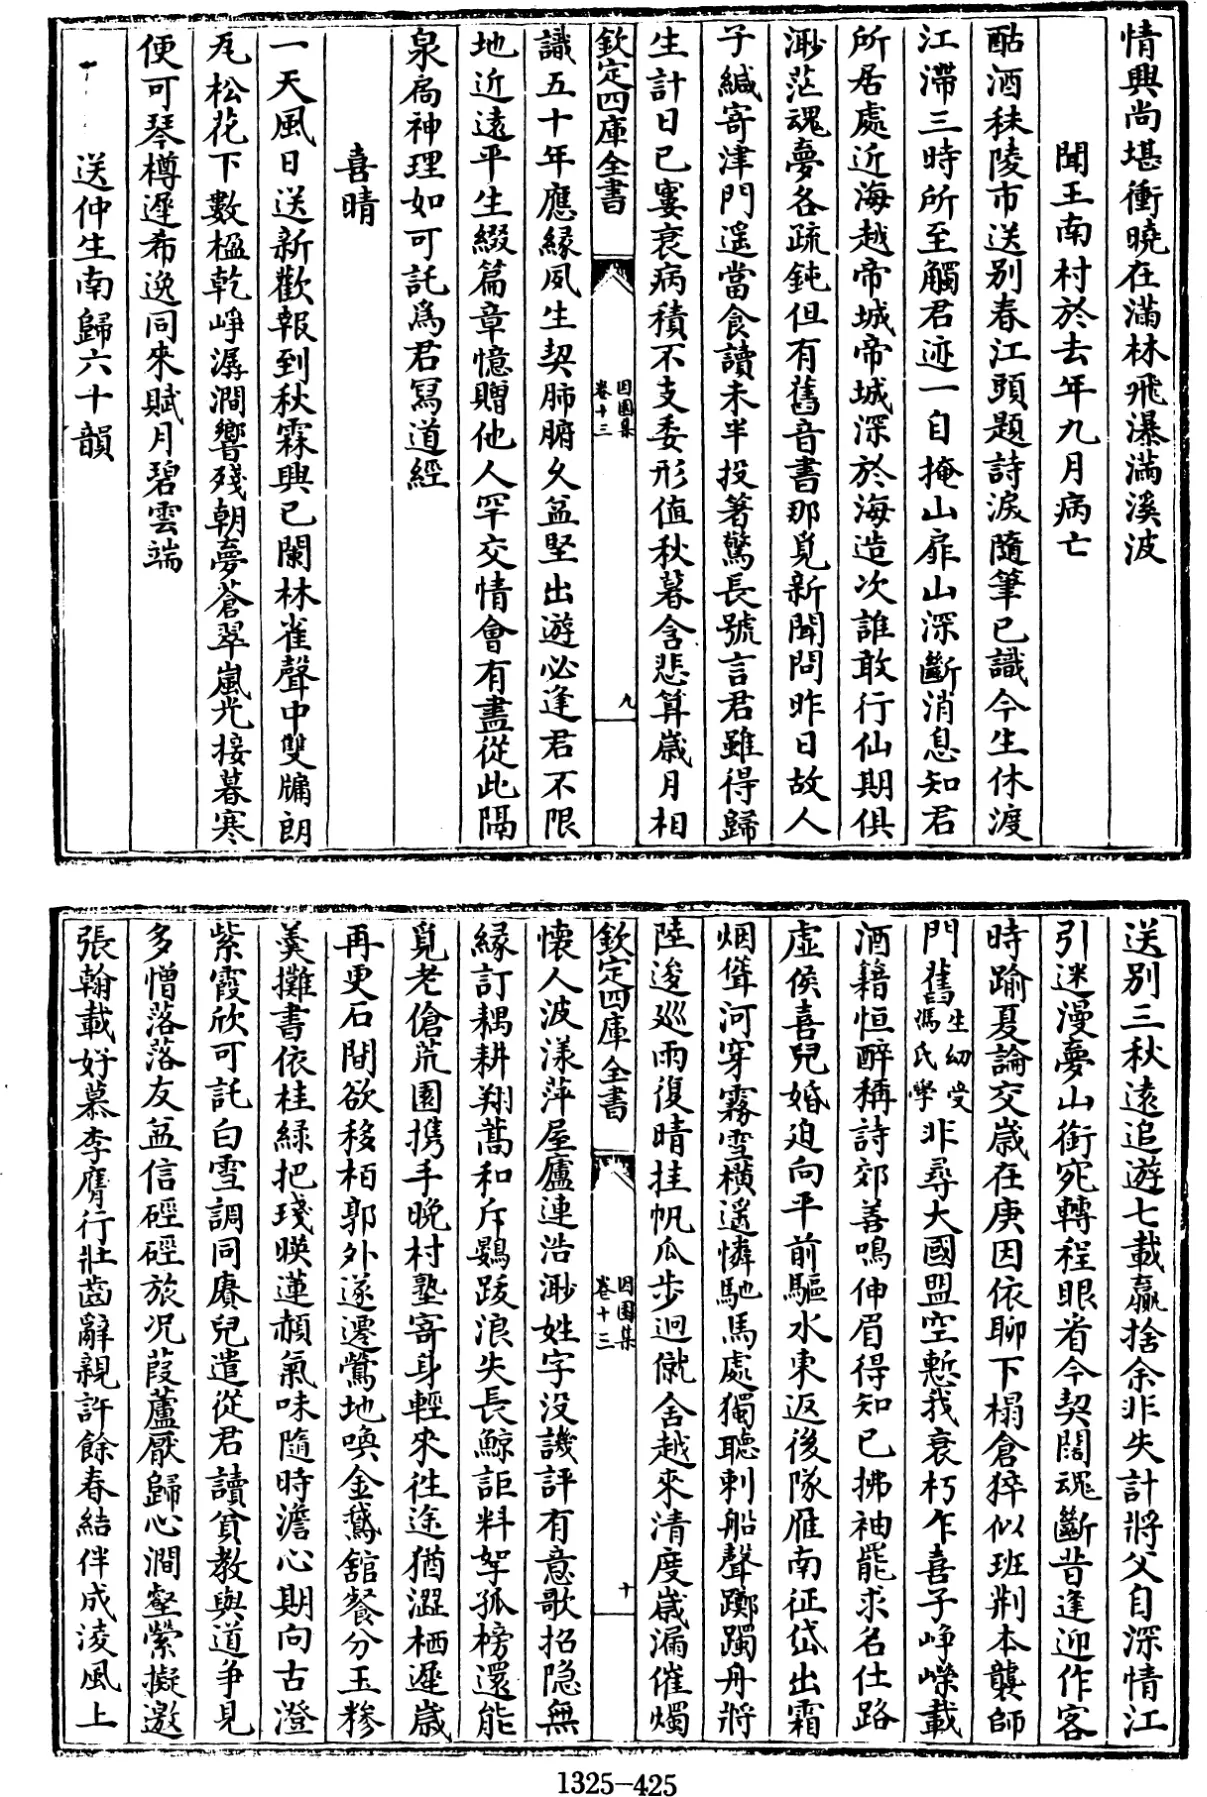 情興尚堪衝曉在滿林飛瀑滿溪波
聞王南村於去年九月病亡
酤酒秣陵市送别春江頭題詩淚隨筆已識今生休渡
江滯三時所至觸君迹一自掩山扉山深斷消息知君
所居處近海越帝城帝城深於海造次誰敢行仙期俱
渺茫魂夢各疏鈍但有舊音書那覓新聞問昨日故人
子緘寄津門遥當食讀未半投著驚長號言君雖得歸
生計日已窶衰病積不支委形值秋暮含悲算歲月相
欽定四庫全書
因園集
卷十三
九
識五十年應緣夙生契肺腑久益堅出遊必逢君不限
地近遠平生綴篇章憶贈他人罕交情會有盡從此隔
泉扃神理如可託為君冩道經
喜晴
一天風日送新歡報到秋霖興已闌林雀聲中雙牖朗
凫松花下數楹乾崢潺澗響殘朝夢蒼翠嵐光接暮寒
便可琴樽遲希逸同來賦月碧雲端
送仲生南歸六十韻
送别三秋遠追遊七載贏捨余非失計將父自深情江
引迷漫夢山銜宛轉程眼看今契闊魂斷昔逢迎作客
時踰夏論交歲在庚因依聊下榻倉猝似班荆本襲師
門舊生幼受馮氏學非尋大國盟空慙我衰朽乍喜子崢嶸載
酒籍恒醉稱詩郊善鳴伸眉得知已拂袖罷求名仕路
虚侯喜兒婚迫向平前驅水東返後隊雁南征岱出霜
烟聳河穿霧雪横遥憐馳馬處獨聽刺船聲躑躅丹將
陸逡巡雨復晴挂帆瓜步迥僦舍越來清度歲漏催燭
欽定四庫全書
因園集
卷十三
十
懷人波漾萍屋廬連浩渺姓字没譏評有意歌招隐無
緣訂耦耕翔蒿和斥鷃跋浪失長鯨詎料挐孤榜還能
覓老傖荒園攜手晚村塾寄身輕來往途猶澀栖遲歲
再更石間欲移柏郭外遂遷鶯地喚金鵞舘餐分玉糝
羹攤書依桂緑把琖暎蓮頳氣味隨時澹心期向古澄
紫霞欣可託白雪調同賡兒遣從君讀貧教與道爭見
多憎落落友益信硜硜旅况葭蘆厭歸心澗壑縈擬邀
張翰載好慕李膺行壯齒辭親許餘春結伴成淩風上
1325-425